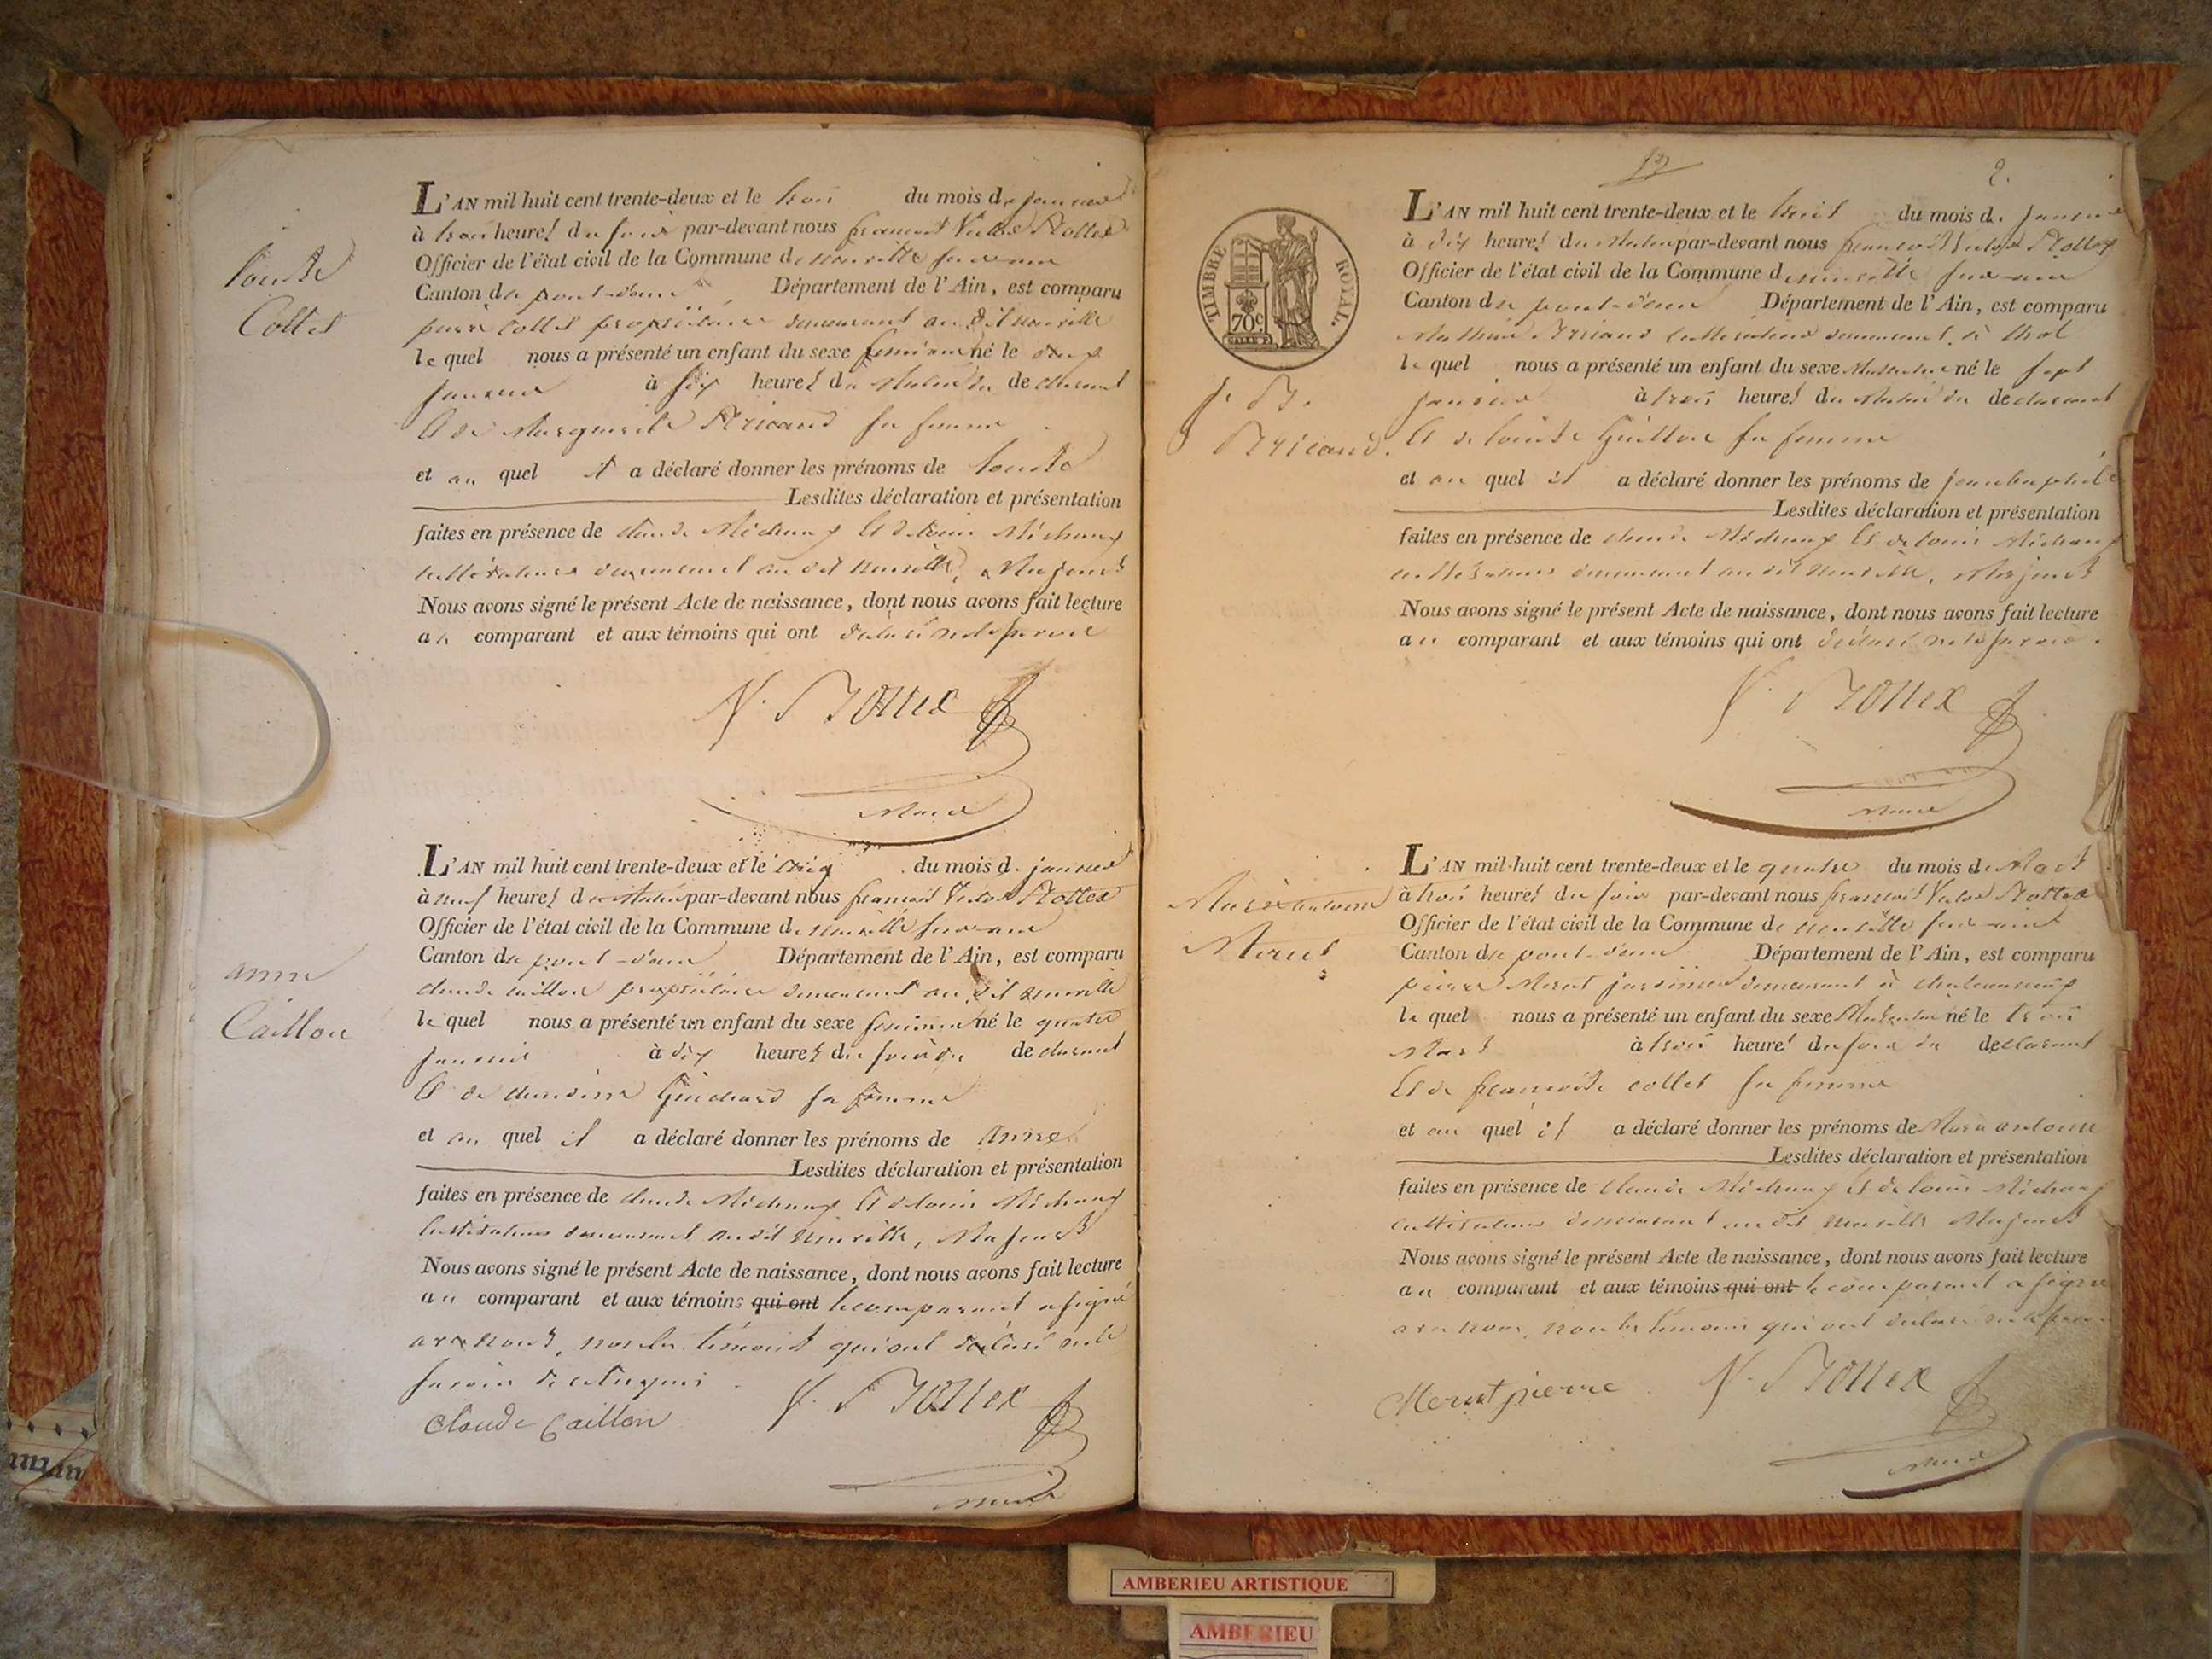 Louise
Collet
L'AN mil huit cent trente-deux et le trois du mois de janvier
à trois heures du soir par-devant nous françois Victor Rottex
Officier de l'état civil de la Commune de neuville sur ain
Canton de pont-d'ain Département de l'Ain, est comparu
pierre Collet propriétaire demeurant au dit neuville
lequel nous a présenté un enfant du sexe féminin né le deux
janvier à six heures du Matin du declarant
Et de Marguerite Bricand sa femme
et au quel il a déclaré donner les prénoms de Louise
Lesdites déclaration et présentation
faites en présence de claude Michaux Et de Louis Michaux
cultivateurs demeurant au dit neuville, Majeurs
Nous avons signé le présent Acte de naissance, dont nous avons fait lecture
au comparant et aux témoins qui ont déclaré ne le savoir
Maire
anne
Caillon
L'AN mil huit cent trente-deux et le cinq du mois de janvier
à neuf heures du Matin par-devant nous françois Victor Rottex
Officier de l'état civil de la Commune de neuville sur ain
Canton de pont-d'ain Département de l'Ain, est comparu
claude caillon propriétaire demeurant au dit neuville
lequel nous a présenté un enfant du sexe féminin né le quatre
janvier à dix heures du soir du declarant
Et de claudine Guichard sa femme
et au quel il a déclaré donner les prénoms de anne
Lesdites déclaration et présentation
faites en présence de claude Michaux Et de Louis Michaux
cultivateurs demeurant au dit neuville, Majeurs
Nous avons signé le présent Acte de naissance, dont nous avons fait lecture
au comparant et aux témoins qui ont le comparant a signé
avec nous, non les témoins qui ont déclaré ne le
savoir de ce enquis
Claude Caillon
Maire
2.
TIMBRE ROYAL.
70c
L'AN mil huit cent trente-deux et le huit du mois de janvier
à dix heures du Matin par-devant nous françois Victor Rottex
Officier de l'état civil de la Commune de neuville sur-ain
Canton de pont-d'ain Département de l'Ain, est comparu
Bricand cultivateur demeurant à thol
lequel nous a présenté un enfant du sexe Masculin né le sept
janvier à trois heures du Matin du declarant
Et de Louise Guillon sa femme
et au quel il a déclaré donner les prénoms de jeanbaptiste
Lesdites déclaration et présentation
faites en présence de claude Michaux Et de Louis Michaux
cultivateurs demeurant au dit neuville, Majeurs
Nous avons signé le présent Acte de naissance, dont nous avons fait lecture
au comparant et aux témoins qui ont déclaré ne le savoir.
Maire
j. B.
Bricand.
L'AN mil huit cent trente-deux et le quatre du mois de Mars
à trois heures du soir par-devant nous françois Victor Rottex
Officier de l'état civil de la Commune de neuville sur-ain
Canton de pont-d'ain Département de l'Ain, est comparu
pierre Merat jardinier demeurant à chateauvieux
lequel nous a présenté un enfant du sexe Masculin né le trois
Mars à trois heures du soir du declarant
Et de françoise collet sa femme
et au quel il a déclaré donner les prénoms de Marie antoine
Lesdites déclaration et présentation
faites en présence de claude Michaux Et de Louis Michaux
cultivateurs demeurant au dit neuville Majeurs
Nous avons signé le présent Acte de naissance, dont nous avons fait lecture
au comparant et aux témoins qui ont le comparant a signé
avec nous, non les témoins qui ont déclaré ne le savoir
Merat pierre
Maire
Marie antoine
Merat
AMBERIEU ARTISTIQUE
AMBERIEU